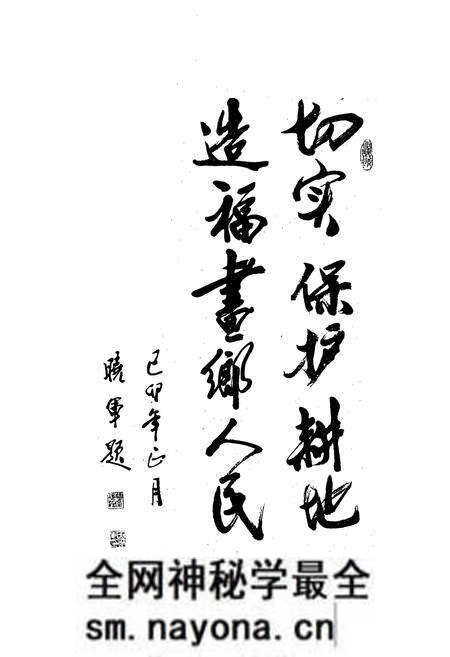 切实保护耕地
造福畫鄉人民
己卯年正月
曉軍题
全网神秘学最全
sm.nayona.cn